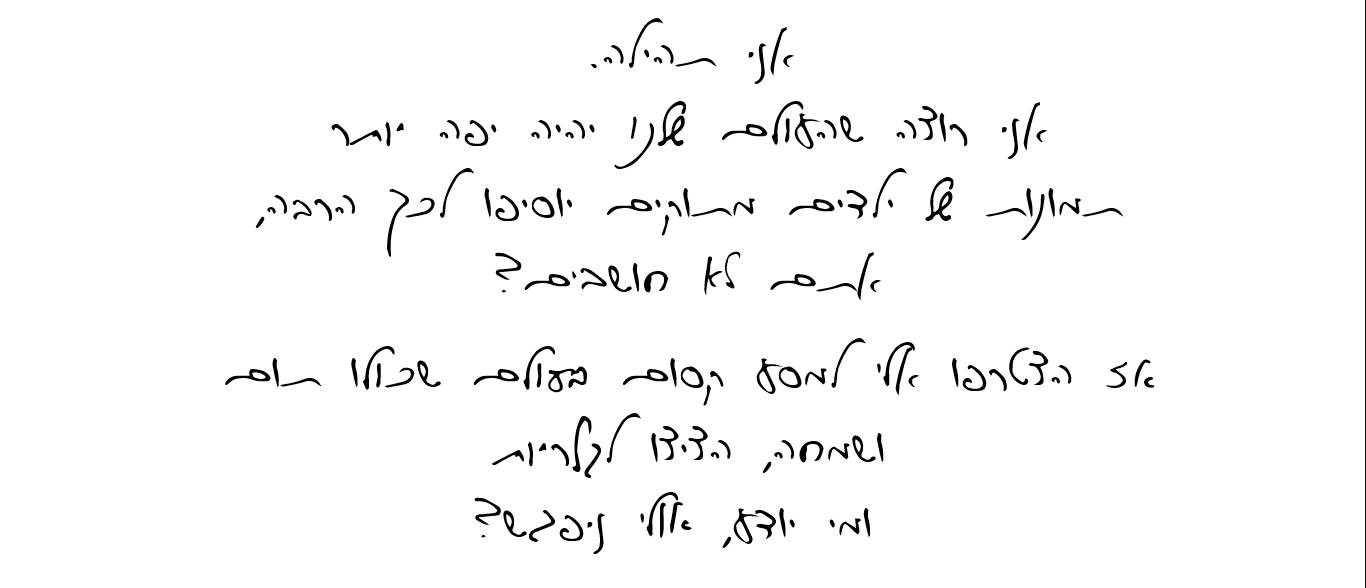 אני תהילה.
אני רוצה שהעולם שלנו יהיה יפה יותר
תמונות של ילדים מתוקים יוסיפו לכך הרבה,
אתם לא חושבים?
אז הצטרפו אלי למסע קסום בעולם שכולו תום
ושמחה, הציצו לגלריות
ומי יודע, אולי ניפגש?